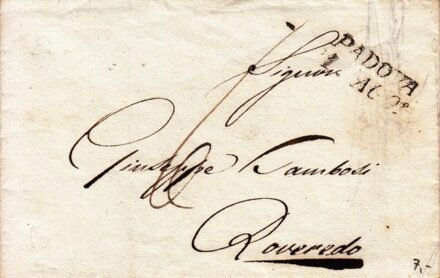 PADOVA
AGO
Signor
Giuseppe Tambosi
Roveredo
7,-